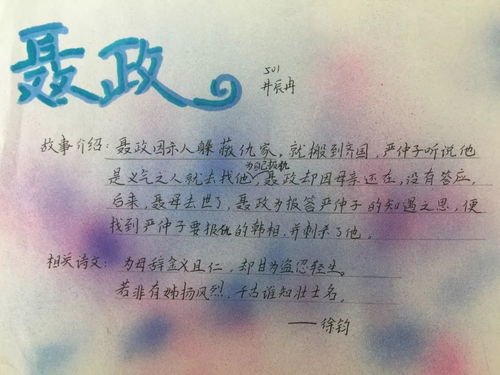 聂政
501
井辰冉
故事介绍：聂政因杀人躲蔽仇家，就搬到齐国，严仲子听说他
为自己报仇
是义气之人就去找他，聂政却因母亲还在，没有答应，
后来，聂母去世了，聂政为报答严仲子的知遇之恩，便
找到严仲子要报仇的韩相，并刺杀了他。
相关诗文：为母辞金义且仁，却甘为盗忍轻生。
若非有姊扬风烈，千古谁知壮士名。
——徐钧